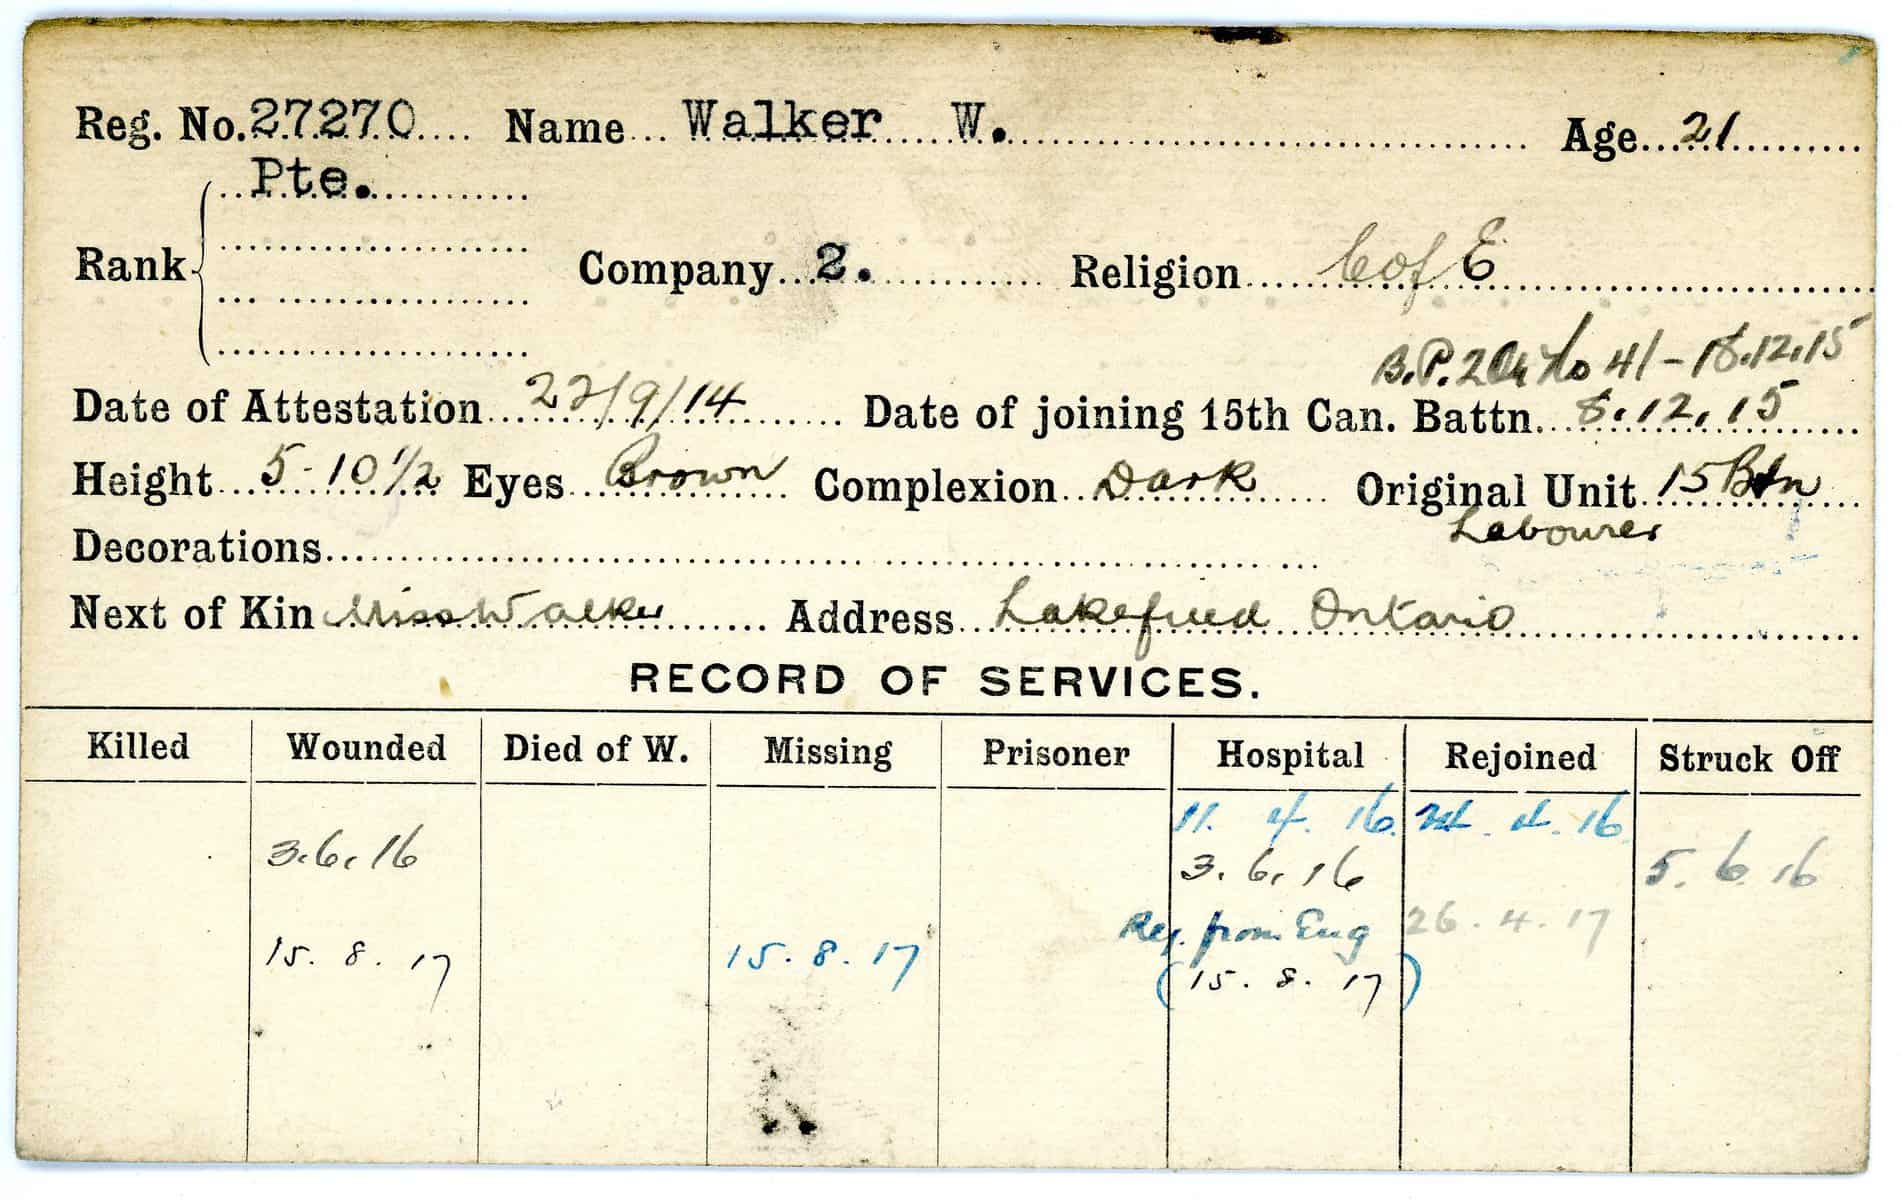 Reg. No. 27270 Name Walker W. Age 21
Pte.
Rank Company 2. Religion C of E
B.P. 2 No 41 - 18.12.15
Date of Attestation 22/9/14 Date of joining 15th Can. Battn. 8.12.15
Height 5-10 1/2 Eyes Brown Complexion Dark Original Unit 15 Btn
Labourer
Decorations
Next of Kin Miss Walker Address Lakefield Ontario
RECORD OF SERVICES.
Killed Wounded Died of W. Missing Prisoner Hospital Rejoined Struck Off
11. 4. 16. 4. 16
3.6.16 3.6.16 5. 6 16
from Eng 26.4.17
15.8.17 15.8.17 (15.8.17)